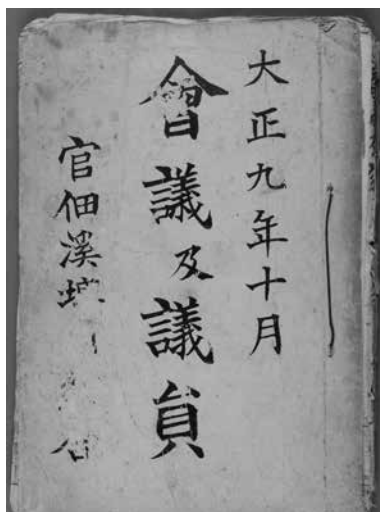 大正九年十月
會議及議員
官佃溪埤